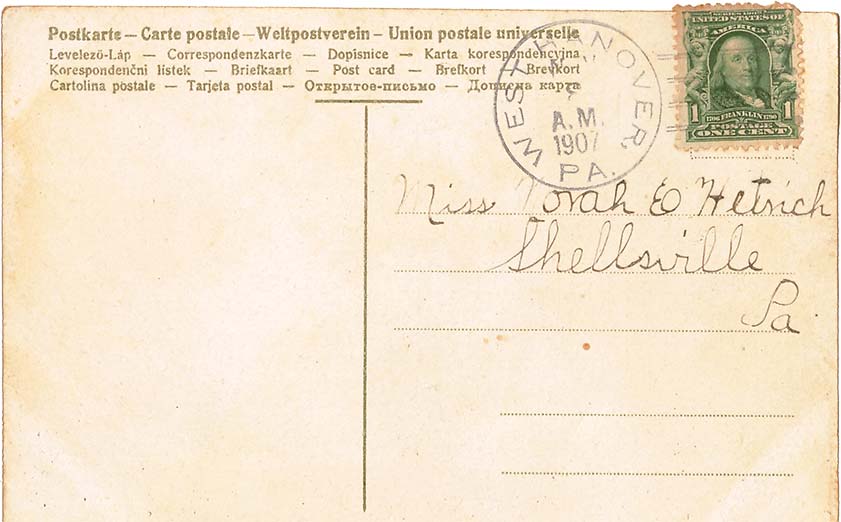 Postkarte – Carte postale – Weltpostverein – Union postale universelle
Levelező-Láp — Correspondenzkarte — Dopisnice — Karta korespondencyjna
Korespondenční lístek — Briefkaart — Post card — Brefkort — Brevkort
Cartolina postale — Tarjeta postal — Открытое-письмо — Дописна карта
WEST HANOVER
A.M.
1907
PA.
SERIES 1902
UNITED STATES OF
AMERICA
1 1
1706 FRANKLIN 1790
POSTAGE
ONE CENT
Miss Norah E Hetrich
Shellsville
Pa